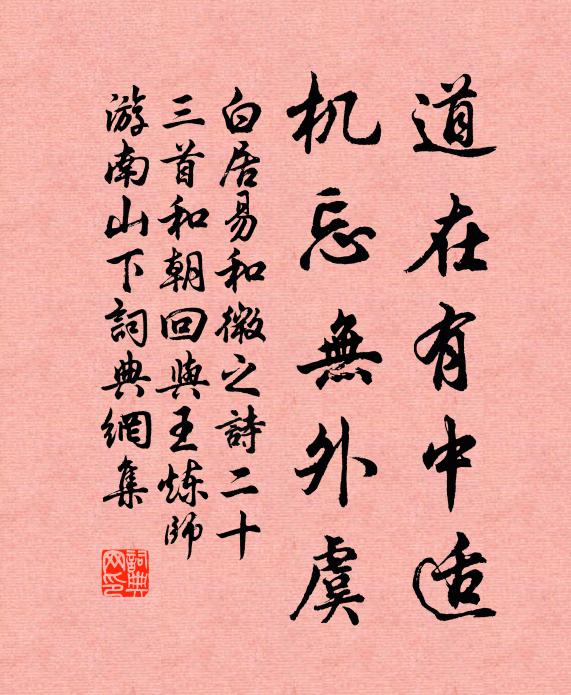 道在有中适
机忘無外虞
白居易和微之詩二十
三首和朝回與王炼師
游南山下詞典網集
詞典网印